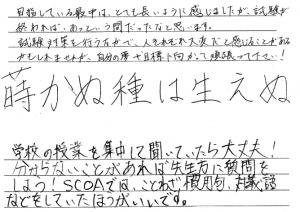 目指している最中は、とても長いように感じましたが、試験が
終われば、あっという間だったなと思います。
試験対策を行うなかで、人それぞれ大変だと感じることがある
かもしれませんが、自分の夢や目標に向かって頑張って下さい!
蒔かぬ種は生えぬ
学校の授業を集中して聞いていたら大丈夫!
分からないことがあれば先生方に質問を
しよう!SCOAでは、ことわざ、慣用句、対義語
などをしていたほうがいいです。